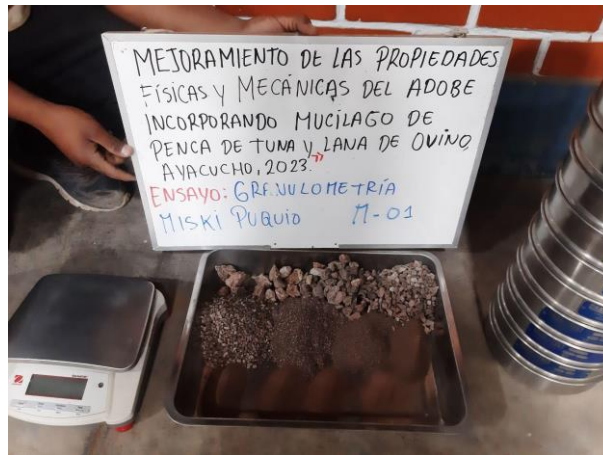 MEJORAMIENTO DE LAS PROPIEDADES
FÍSICAS Y MECÁNICAS DEL ADOBE
INCORPORANDO MUCÍLAGO DE
PENCA DE TUNA Y LANA DE OVINO,
AYACUCHO, 2023."
ENSAYO: GRANULOMETRÍA
MISKI PUQUIO M-01